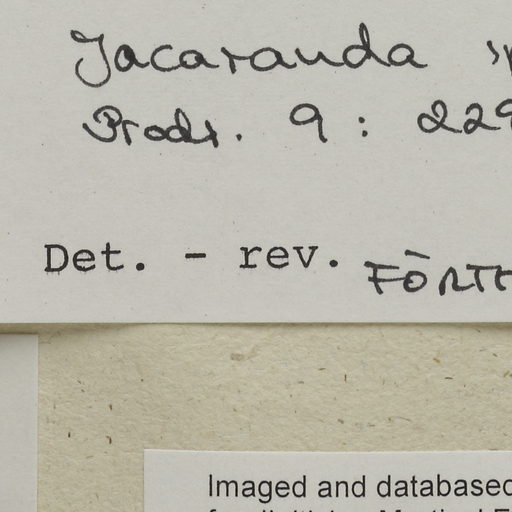 Jacaranda
Prodr. 9: 229
Det. - rev. FÖRTH
Imaged and databased